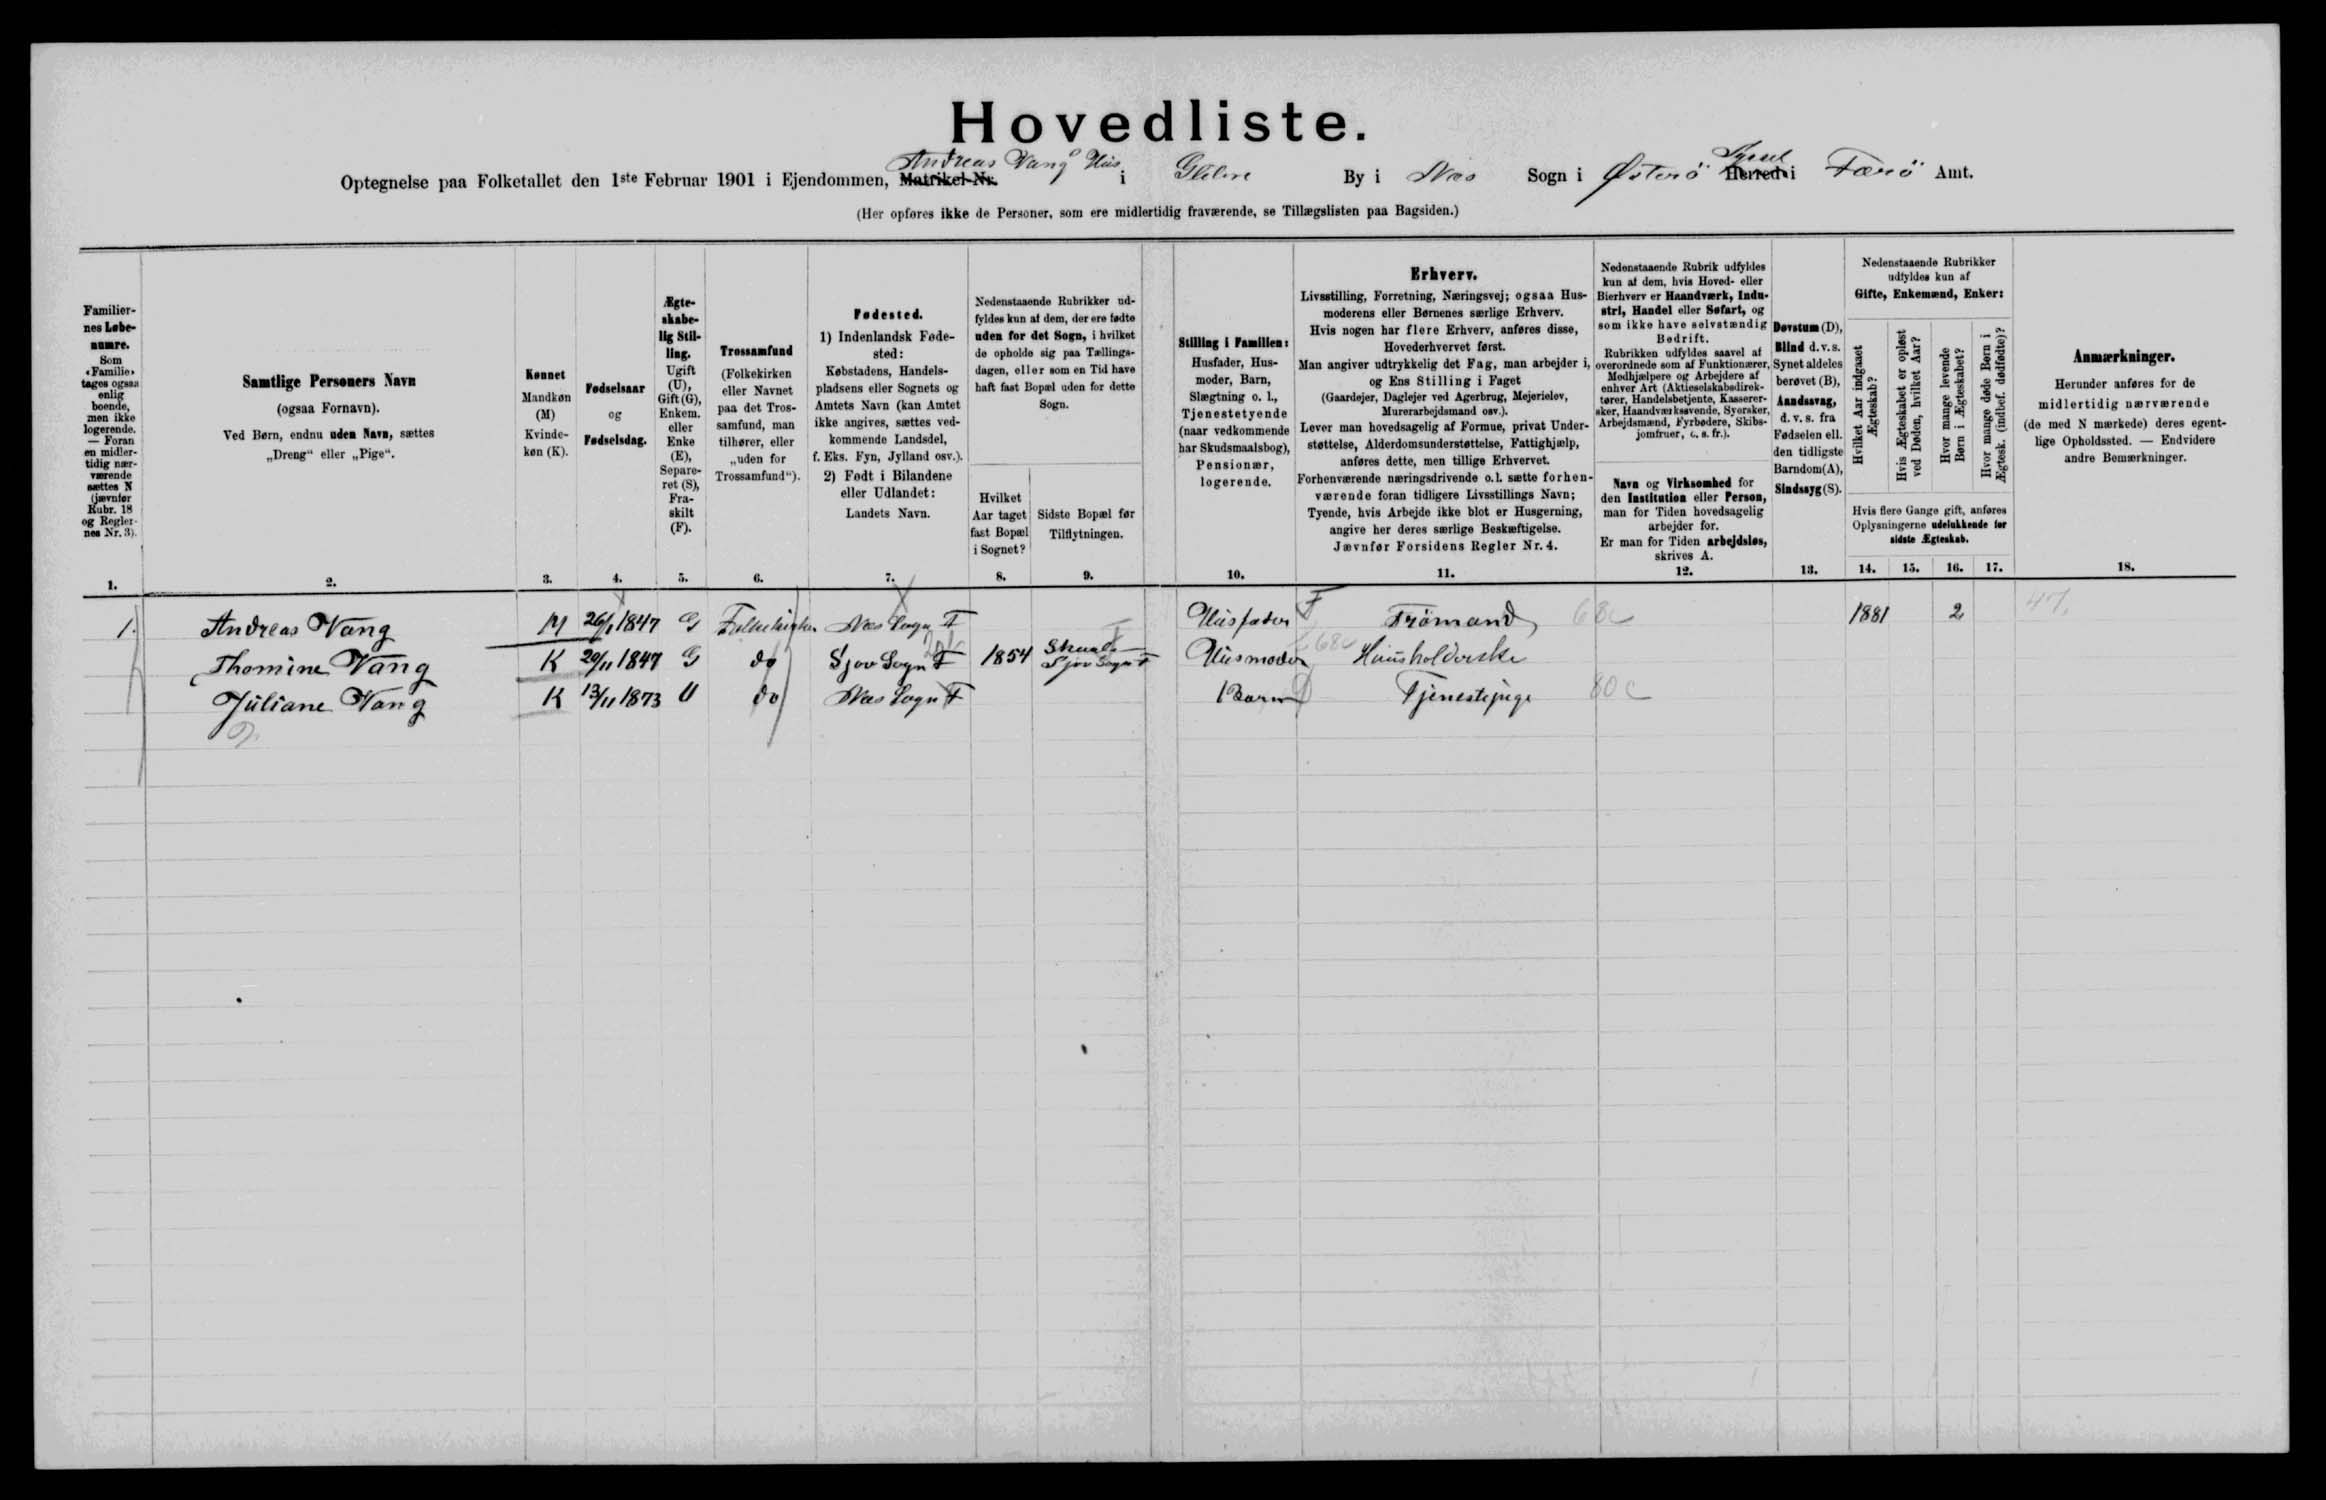 Hovedliste.
Andreas Vang Hus Syssel
Optegnelse paa Folketallet den 1ste Februar 1901 i Ejendommen, Matrikel-Nr. i Glibre By i Næs Sogn i Østerö Herred i Færö Amt.
(Her opføres ikke de Personer, som ere midlertidig fraværende, se Tillægslisten paa Bagsiden.)
Familier-
nes Løbe-
numre.
Som
«Familie»
tages ogsaa
enlig
boende,
men ikke
logerende.
— Foran
en midler-
tidig nær-
værende
sættes N
(jævnfør
Rubr. 18
og Regler-
nes Nr. 3).
1.
Samtlige Personers Navn
(ogsaa Fornavn).
Ved Børn, endnu uden Navn, sættes
„Dreng“ eller „Pige“.
2.
Kønnet
Mandkøn
(M)
Kvinde-
køn (K).
3.
Fødselsaar
og
Fødselsdag.
4.
Ægte-
skabe-
lig Stil-
ling.
Ugift
(U),
Gift (G),
Enkem.
eller
Enke
(E),
Separe-
ret (S),
Fra-
skilt
(F).
5.
Trossamfund
(Folkekirken
eller Navnet
paa det Tros-
samfund, man
tilhører, eller
„uden for
Trossamfund“).
6.
Fødested.
1) Indenlandsk Føde-
sted:
Købstadens, Handels-
pladsens eller Sognets og
Amtets Navn (kan Amtet
ikke angives, sættes ved-
kommende Landsdel,
f. Eks. Fyn, Jylland osv.).
2) Født i Bilandene
eller Udlandet:
Landets Navn.
7.
Nedenstaaende Rubrikker ud-
fyldes kun af dem, der ere fødte
uden for det Sogn, i hvilket
de opholde sig paa Tællings-
dagen, eller som en Tid have
haft fast Bopæl uden for dette
Sogn.
Hvilket
Aar taget
fast Bopæl
i Sognet?
8.
Sidste Bopæl før
Tilflytningen.
9.
Stilling i Familien:
Husfader, Hus-
moder, Barn,
Slægtning o. l.,
Tjenestetyende
(naar vedkommende
har Skudsmaalsbog),
Pensionær,
logerende.
10.
Erhverv.
Livsstilling, Forretning, Næringsvej; ogsaa Hus-
moderens eller Børnenes særlige Erhverv.
Hvis nogen har flere Erhverv, anføres disse,
Hovederhvervet først.
Man angiver udtrykkelig det Fag, man arbejder i,
og Ens Stilling i Faget
(Gaardejer, Daglejer ved Agerbrug, Mejerielev,
Murerarbejdsmand osv.).
Lever man hovedsagelig af Formue, privat Under-
støttelse, Alderdomsunderstøttelse, Fattighjælp,
anføres dette, men tillige Erhvervet.
Forhenværende næringsdrivende o.l. sætte forhen-
værende foran tidligere Livsstillings Navn;
Tyende, hvis Arbejde ikke blot er Husgerning,
angive her deres særlige Beskæftigelse.
Jævnfør Forsidens Regler Nr. 4.
11.
Nedenstaaende Rubrik udfyldes
kun af dem, hvis Hoved- eller
Bierhverv er Haandværk, Indu-
stri, Handel eller Søfart, og
som ikke have selvstændig
Bedrift.
Rubrikken udfyldes saavel af
overordnede som af Funktionærer,
Medhjælpere og Arbejdere af
enhver Art (Aktieselskabsdirek-
tører, Handelsbetjente, Kasserer-
sker, Haandværkssvende, Syersker,
Arbejdsmænd, Fyrbødere, Skibs-
jomfruer, o. s. fr.).
Navn og Virksomhed for
den Institution eller Person,
man for Tiden hovedsagelig
arbejder for.
Er man for Tiden arbejdsløs,
skrives A.
12.
Døvstum (D),
Blind d. v. s.
Synet aldeles
berøvet (B),
Aandssvag,
d. v. s. fra
Fødselen ell.
den tidligste
Barndom (A),
Sindssyg (S).
13.
Nedenstaaende Rubrikker
udfyldes kun af
Gifte, Enkemænd, Enker:
Hvilket Aar indgaaet
Ægteskab?
Hvis Ægteskabet er opløst
ved Døden, hvilket Aar?
Hvor mange levende
Børn i Ægteskabet?
Hvor mange døde Børn i
Ægtesk. (indbef. dødfødte)?
Hvis flere Gange gift, anføres
Oplysningerne udelukkende for
sidste Ægteskab.
14. 15. 16. 17.
Anmærkninger.
Herunder anføres for de
midlertidig nærværende
(de med N mærkede) deres egent-
lige Opholdssted. — Endvidere
andre Bemærkninger.
18.
1. Andreas Vang M 26/1 1847 G Folkekirken Næs Sogn F Husfader F Frömand 68c 1881 2 47.
Thomine Vang K 20/11 1847 G do Sjov Sogn F 1854 Sjov Sogn F Husmoder 68c Huusholderske
Juliane Vang K 13/11 1873 U do Næs Sogn F Barn Tjenestepige 80 c